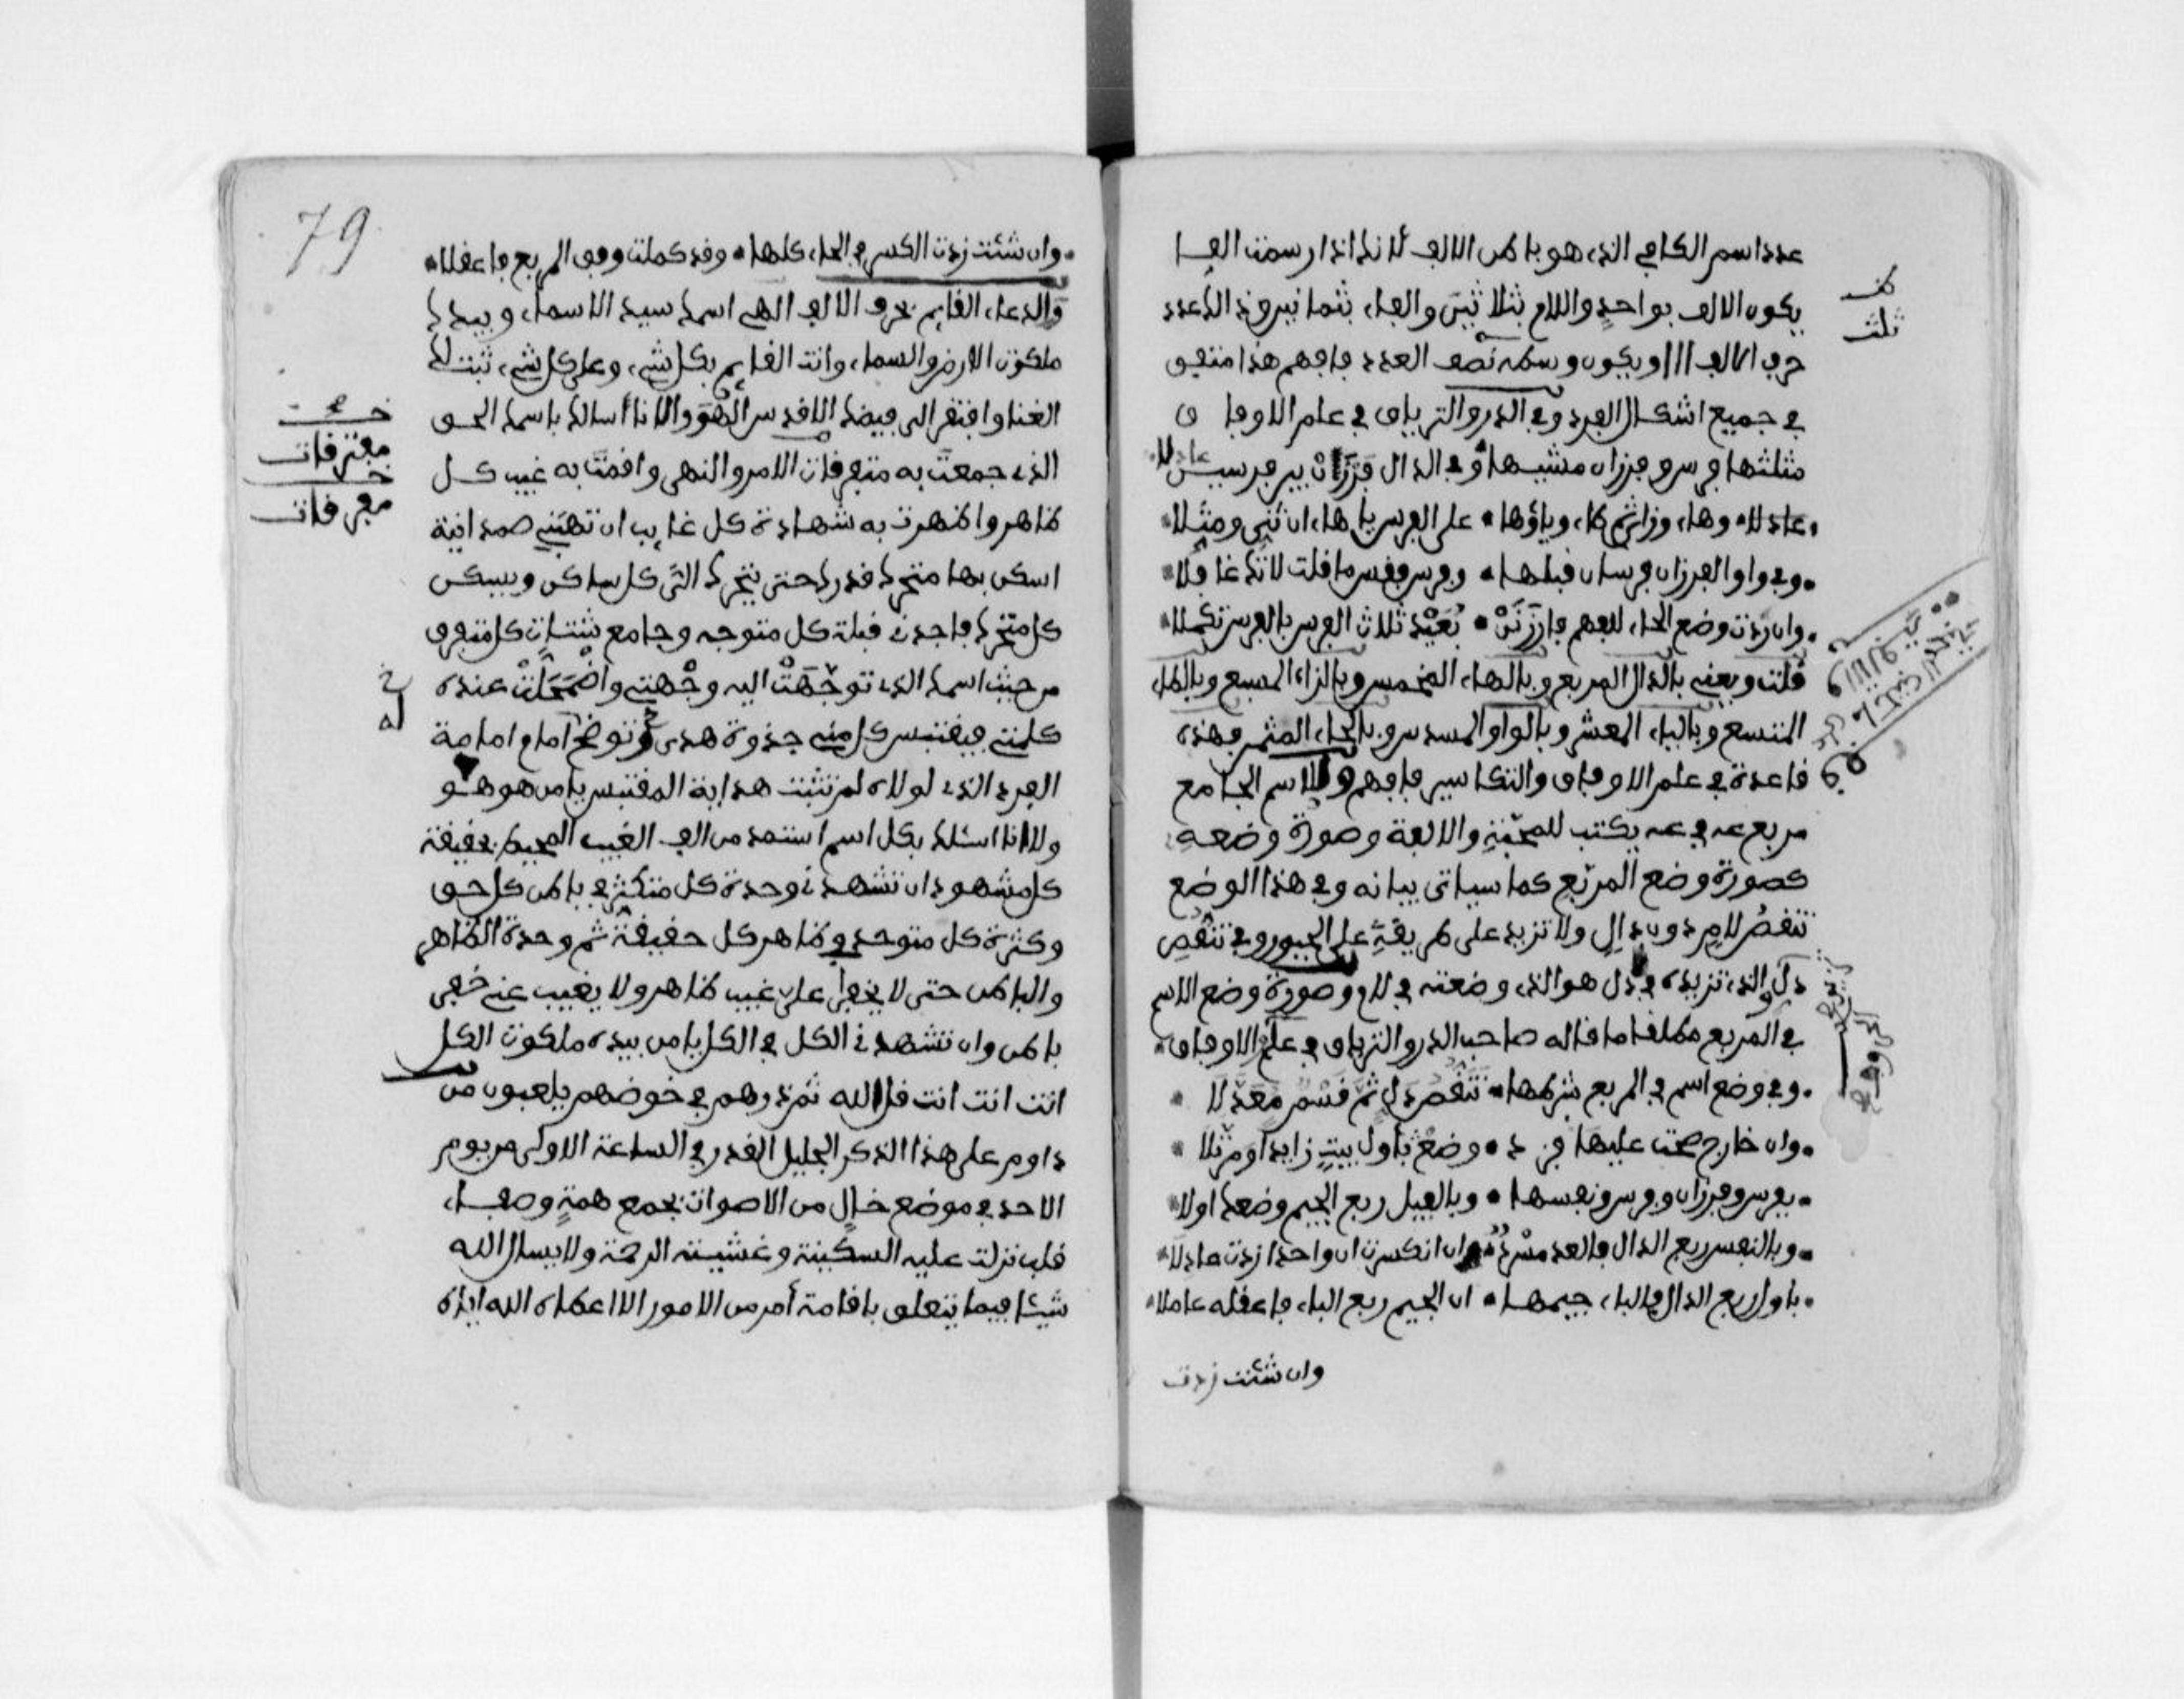 عدد اسم الكافي الذي هو باطن الالف لانك اذا رسمت الفا
يكون الالف بواحد واللام بثلاثين والفاء بثمانين فذلك عدد
حرف الالف ااا ويكون وسطه نصف العدد فافهم هذا متفق
في جميع اشكال الفرد وفي الدر والترياق في علم الاوفا ق
مثلثها فرس وفرزان مشيها وفي الدال فرزان بير فرسين
عادلا وهاء وزاثم طاء وياؤها على الفرس ياهاء ان تثنى ومثلا
وفي واو الفرزان فرسان قبلها وفرس وفرس ما قلت لاتك غافلا
وان زدت وضع الحاء للفهم فارزنن بعيد ثلاث الفرس بالفرس تكملا
قلت ويعني بالدال المربع وبالهاء المخمس وبالزاء المسبع وبالطاء
المتسع وبالياء المعشر وبالواو المسدس وبالحاء المثمن فهذه
قاعدة في علم الاوفاق والتكاسير فافهم وللاسم الجامع
مربع عه في عه يكتب للمحبة والالفة وصورة وضعه
كصورة وضع المربع كما سياتي بيانه وفي هذا الوضع
تنقص لام دون دال ولا تزيد على طريقة على الجبور وفي تنقص
دل والذي تزيده في دل هو الذي وضعته في لام وصورة وضع الاسم
في المربع مطلقا ما قاله صاحب الدر والترياق في علم الاوفاق
وفي وضع اسم في المربع شرطها تنقص دل ثم قسم معدلا
وان خارج صحت عليها فز د وضع باول بيت زايدا ومثلا
بفرس وفرزان وفرس ونفسها وبالفيل ربع الجيم وضعك اولا
وبالنفس ربع الدال فالعد مسرد وان انكسرت ان واحدا زدت مادلا
باول ربع الدال والباء جيمها ان الجيم ربع الباء فاعقله عاملا
وان شئت زدت
ثلث
79
وان شئت زدت الكسر في الحاء كلها وقد كملت وفق المربع فاعقلا
والدعاء القايم بحرف الالف الهي اسمك سيد الاسماء وبيدك
ملكوت الارض والسماء وانت القايم بكل شيء وعلى كل شيء ثبت لك
الغنا وافتقر الى فيضك الاقدس الهو والانا أسالك باسمك الحق
الذي جمعت به متفرقات الامر والنهى واقمت به غيب كل
ظاهر واظهرت به شهادة كل غايب ان تهبني صمدانية
اسكن بها متحرك قدرك حتى يتحرك الي كل ساكن ويسكن
كل متحرك فاجدني قبلة كل متوجه وجامع شتات كل متفرق
من حيث اسمك الذي توجهت اليه وجهتي واضمحلت عنده
كلمتي فيقتبس كل مني جذوة هدى وتوضح امام امامة
الفرد الذي لولاه لم تثبت هداية المقتبس يا من هو هو
ولا انا اسئلك بكل اسم استمد من الف الغيب المحيط بحقيقة
كل مشهود ان تشهدني وحدة كل متكثر في باطن كل حق
وكثرة كل متوحد في ظاهر كل حقيقة ثم وحدة الظاهر
والباطن حتى لا يخفى علي غيب ظاهر ولا يغيب عني خفي
باطن وان تشهدني الكل في الكل يا من بيده ملكوت الكل
انت انت انت قل الله ثم ذرهم في خوضهم يلعبون من
داوم على هذا الذكر الجليل القدر في الساعة الاولى من يوم
الاحد في موضع خال من الاصوات بجمع همة وصفاء
قلب نزلت عليه السكينة وغشيته الرحمة ولا يسال الله
شيئا فيما يتعلق باقامة أمر من الامور الا اعطاه الله اياه
مفترقات
مفرقات